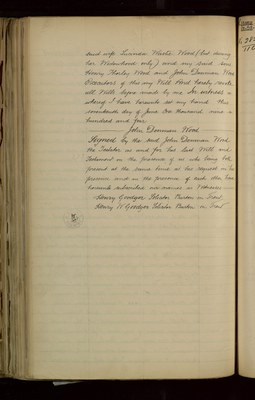 said wife Lucinda Worts Wood (but during
her Widowhood only) and my said son
Henry Worley Wood and John Denman Wood
Executors of this my Will And Hereby revoke
all Wills before made by me In witness
whereof I have hereunto set my hand this
seventeenth day of June One thousand nine
hundred and four
John Denman Wood
Signed by the said John Denman Wood
the Testator as and for his last Will and
Testament in the presence of us who being both
present at the same time at his request in his
presence and in the presence of each other have
hereunto subscribed our names as Witnesses
Henry Goodger Solicitor Burton on Trent
Henry W Goodger Solicitor Burton on Trent